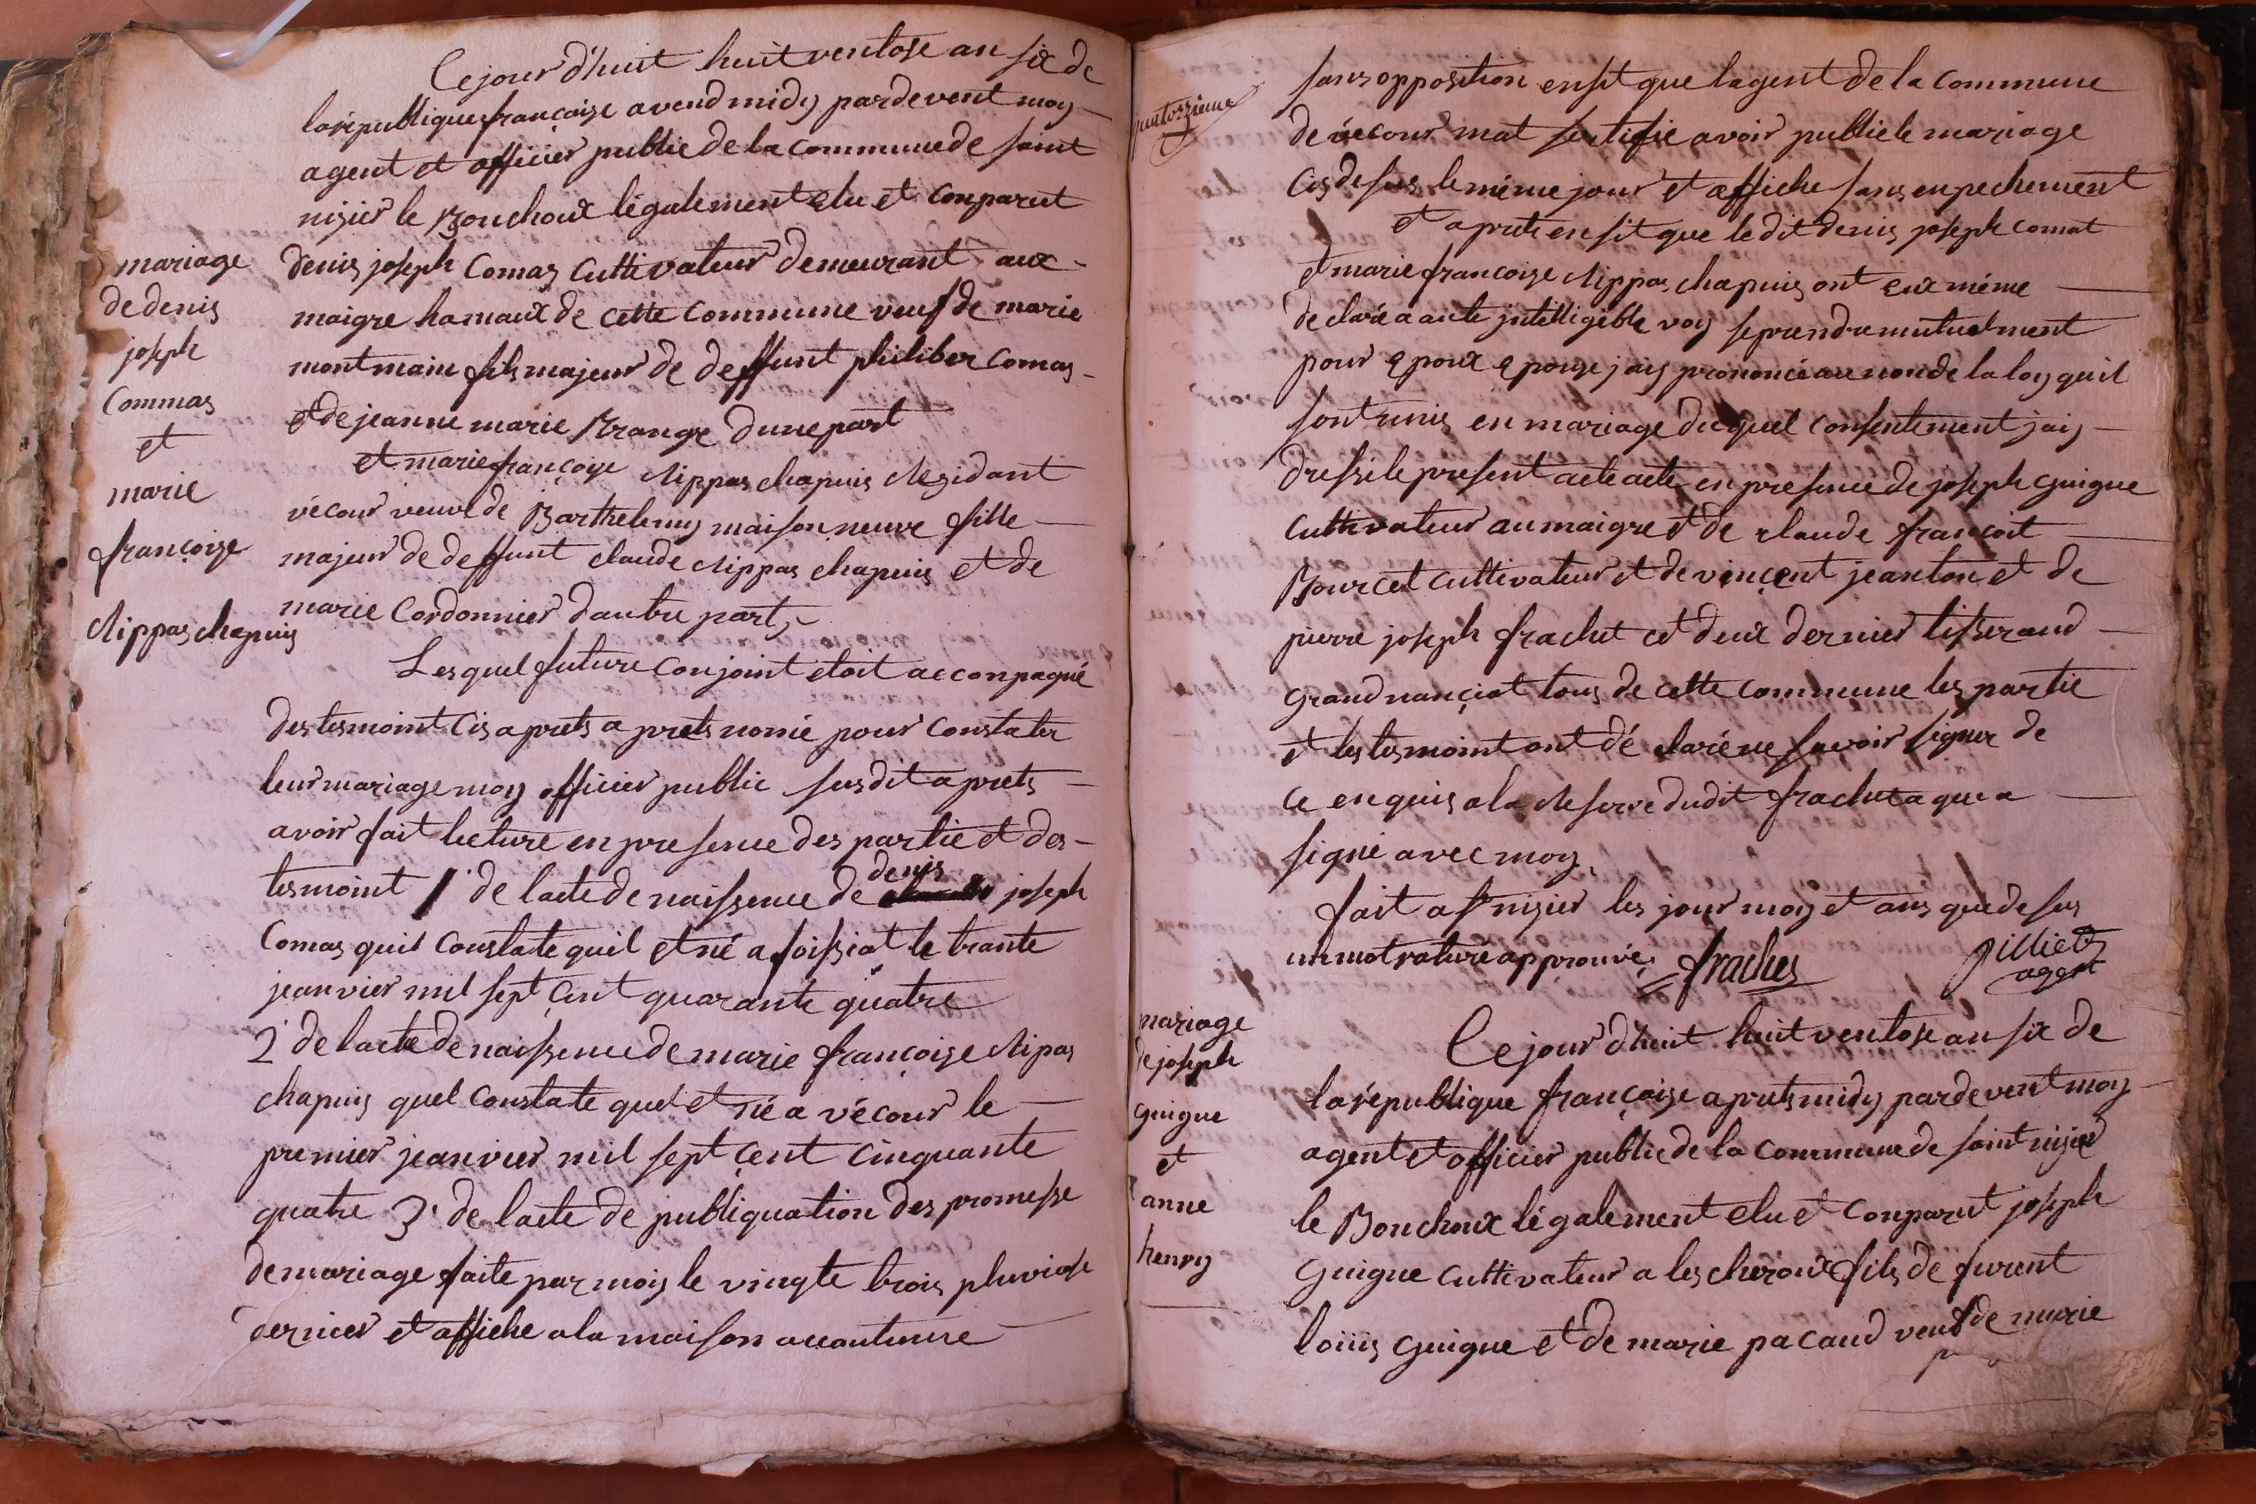 Ce jour d'huit huit ventose an six de
la republique françoise avend midy pardevent moy
agent et officier public de la commune de saint
nizier le Bonchoux légalement elu et conparut
mariage
de denis
joseph
Commas
et
marie
françoise
Rippas chapuis
denis joseph Comas Cultivateur demeurant aux
maigre hamaux de cette commune veuf de marie
montmain fils majeur de deffunt philiber Comas
et de jeanne marie Brange dune part
et marie françoise Rippas chapuis Rezidant
vécour veuve de Barthelemy maison neuve fille
majeur de deffunt claude Rippas chapuis et de
marie Cordonnier dautre part
Lesquel future conjoint etoit acconpagné
des tesmoint cis aprets aprets nomé pour constater
leur mariage moy officier public susdit aprets
avoir fait lecture en presence des partie et des
tesmoint 1° de lacte de naissence de denis joseph
Comas quil constate quil et né a foissiat le trante
jeanvier mil sept çent quarante quatre
2° de lacte de naissence de marie françoize Ripas
chapuis quel constate quel et né a vécour le
premier jeanvier mil sept çent cinquante
quatre 3° de lacte de publiquation des promesse
de mariage faite par moy le vingte trois pluviose
dernier et affiche a la maison accoutumé
quatorzieme
sans opposition ensit que lagent de la commune
de vécour mat sertifie avoir publie le mariage
cis desus le même jour et affiche sans enpechement
et aprits ensit que le dit denis joseph comat
et marie françoize Rippas chapuis ont eux même
declaré a aute jntelligible voy se prendre mutuelment
pour epoux epouze jais prononcé au nom de la loy quil
sont unis en mariage duquel consentement jais
dressé le present acte acte en presence de joseph guigue
cultivateur au maigre et de claude françoit
Bourcet cultivateur et de vinçent jeanton et de
pierre joseph frachet cet deux dernier tisserand
grand nançiat tous de cette commune les partie
et les tesmoint ont dé claré ne savoir signer de
ce enquis a la Reserve dudit frachet a que a
signé avec moy
fait a st nizier les jour moy et ans que desus
un mot raturé approuvé fraches
Pilliet
agent
mariage
de joseph
guigue
et
anne
henry
Ce jour d'huit huit ventose an six de
la république françoize aprets midy pardevent moy
agent et officier public de la commune de saint nizier
le Bonchoux légalement elu et conparut joseph
guigue cultivateur a les cheroux fils de furent
loüis guigue et de marie pacaud veuf de marie